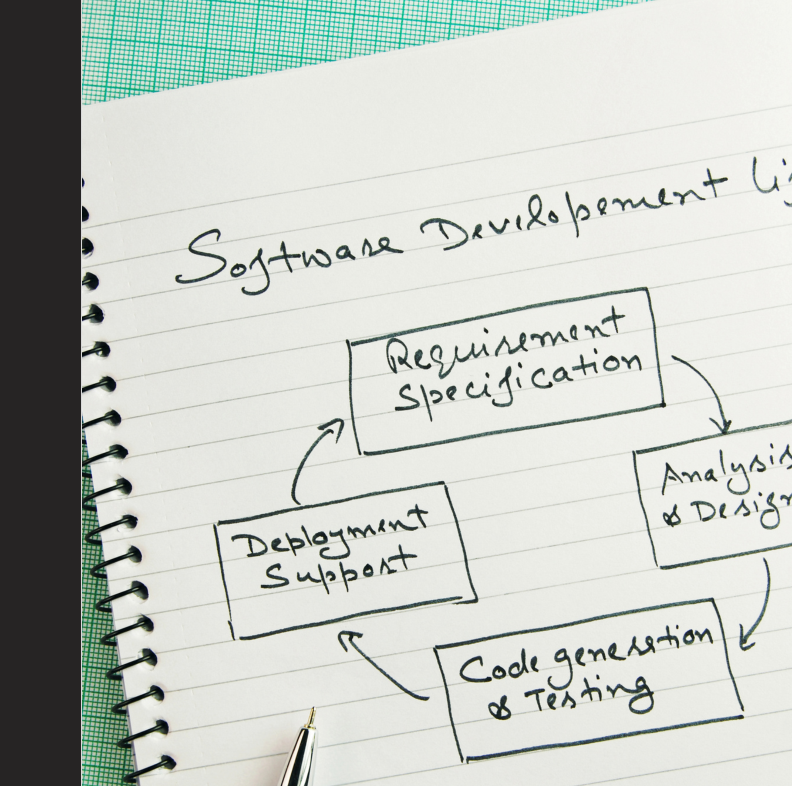 Software Developement Li
Requirement
Specification
Analysis
& Design
Deployment
Support
Code generation
& Testing